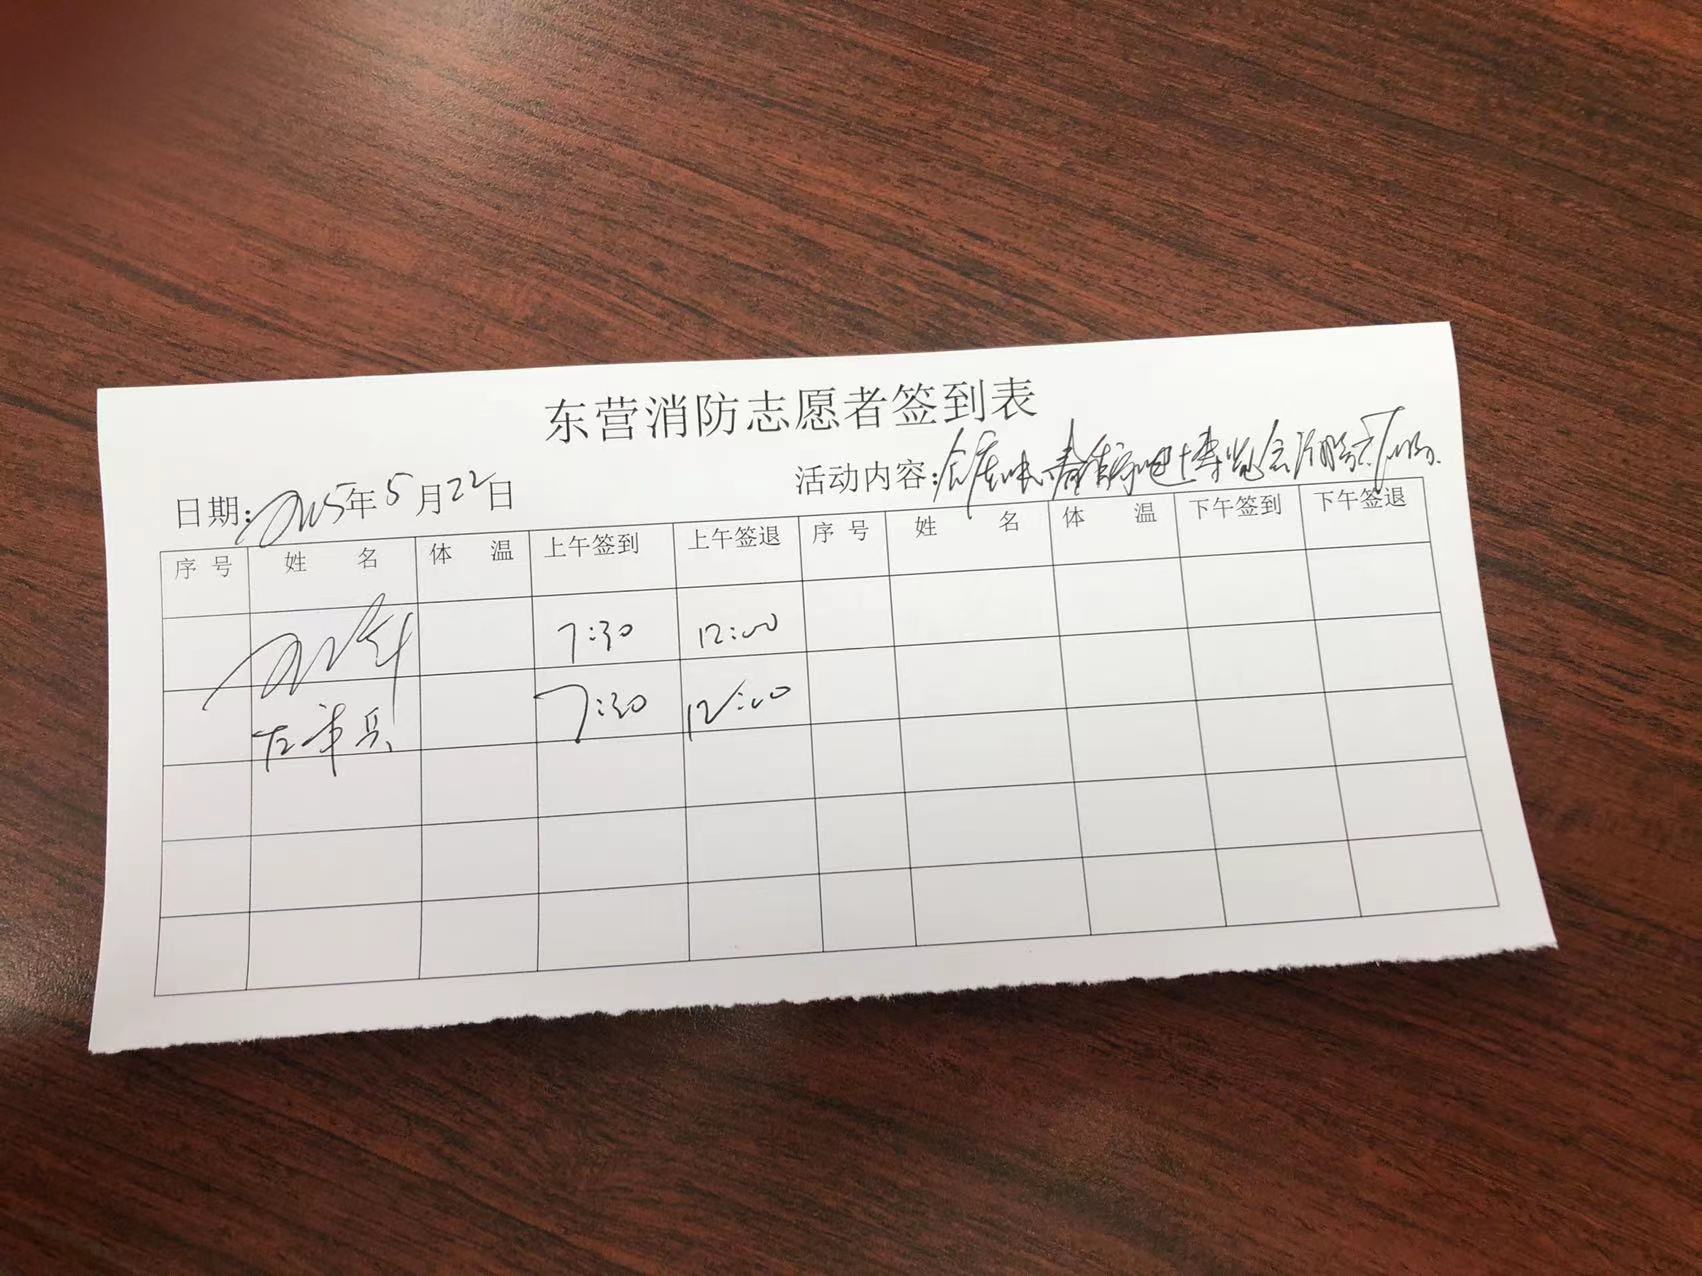 东营消防志愿者签到表
日期: 2025年5月22日 活动内容:
序号 姓名 体温 上午签到 上午签退 序号 姓名 体温 下午签到 下午签退
7:30 12:00
左军兵 7:30 12:00